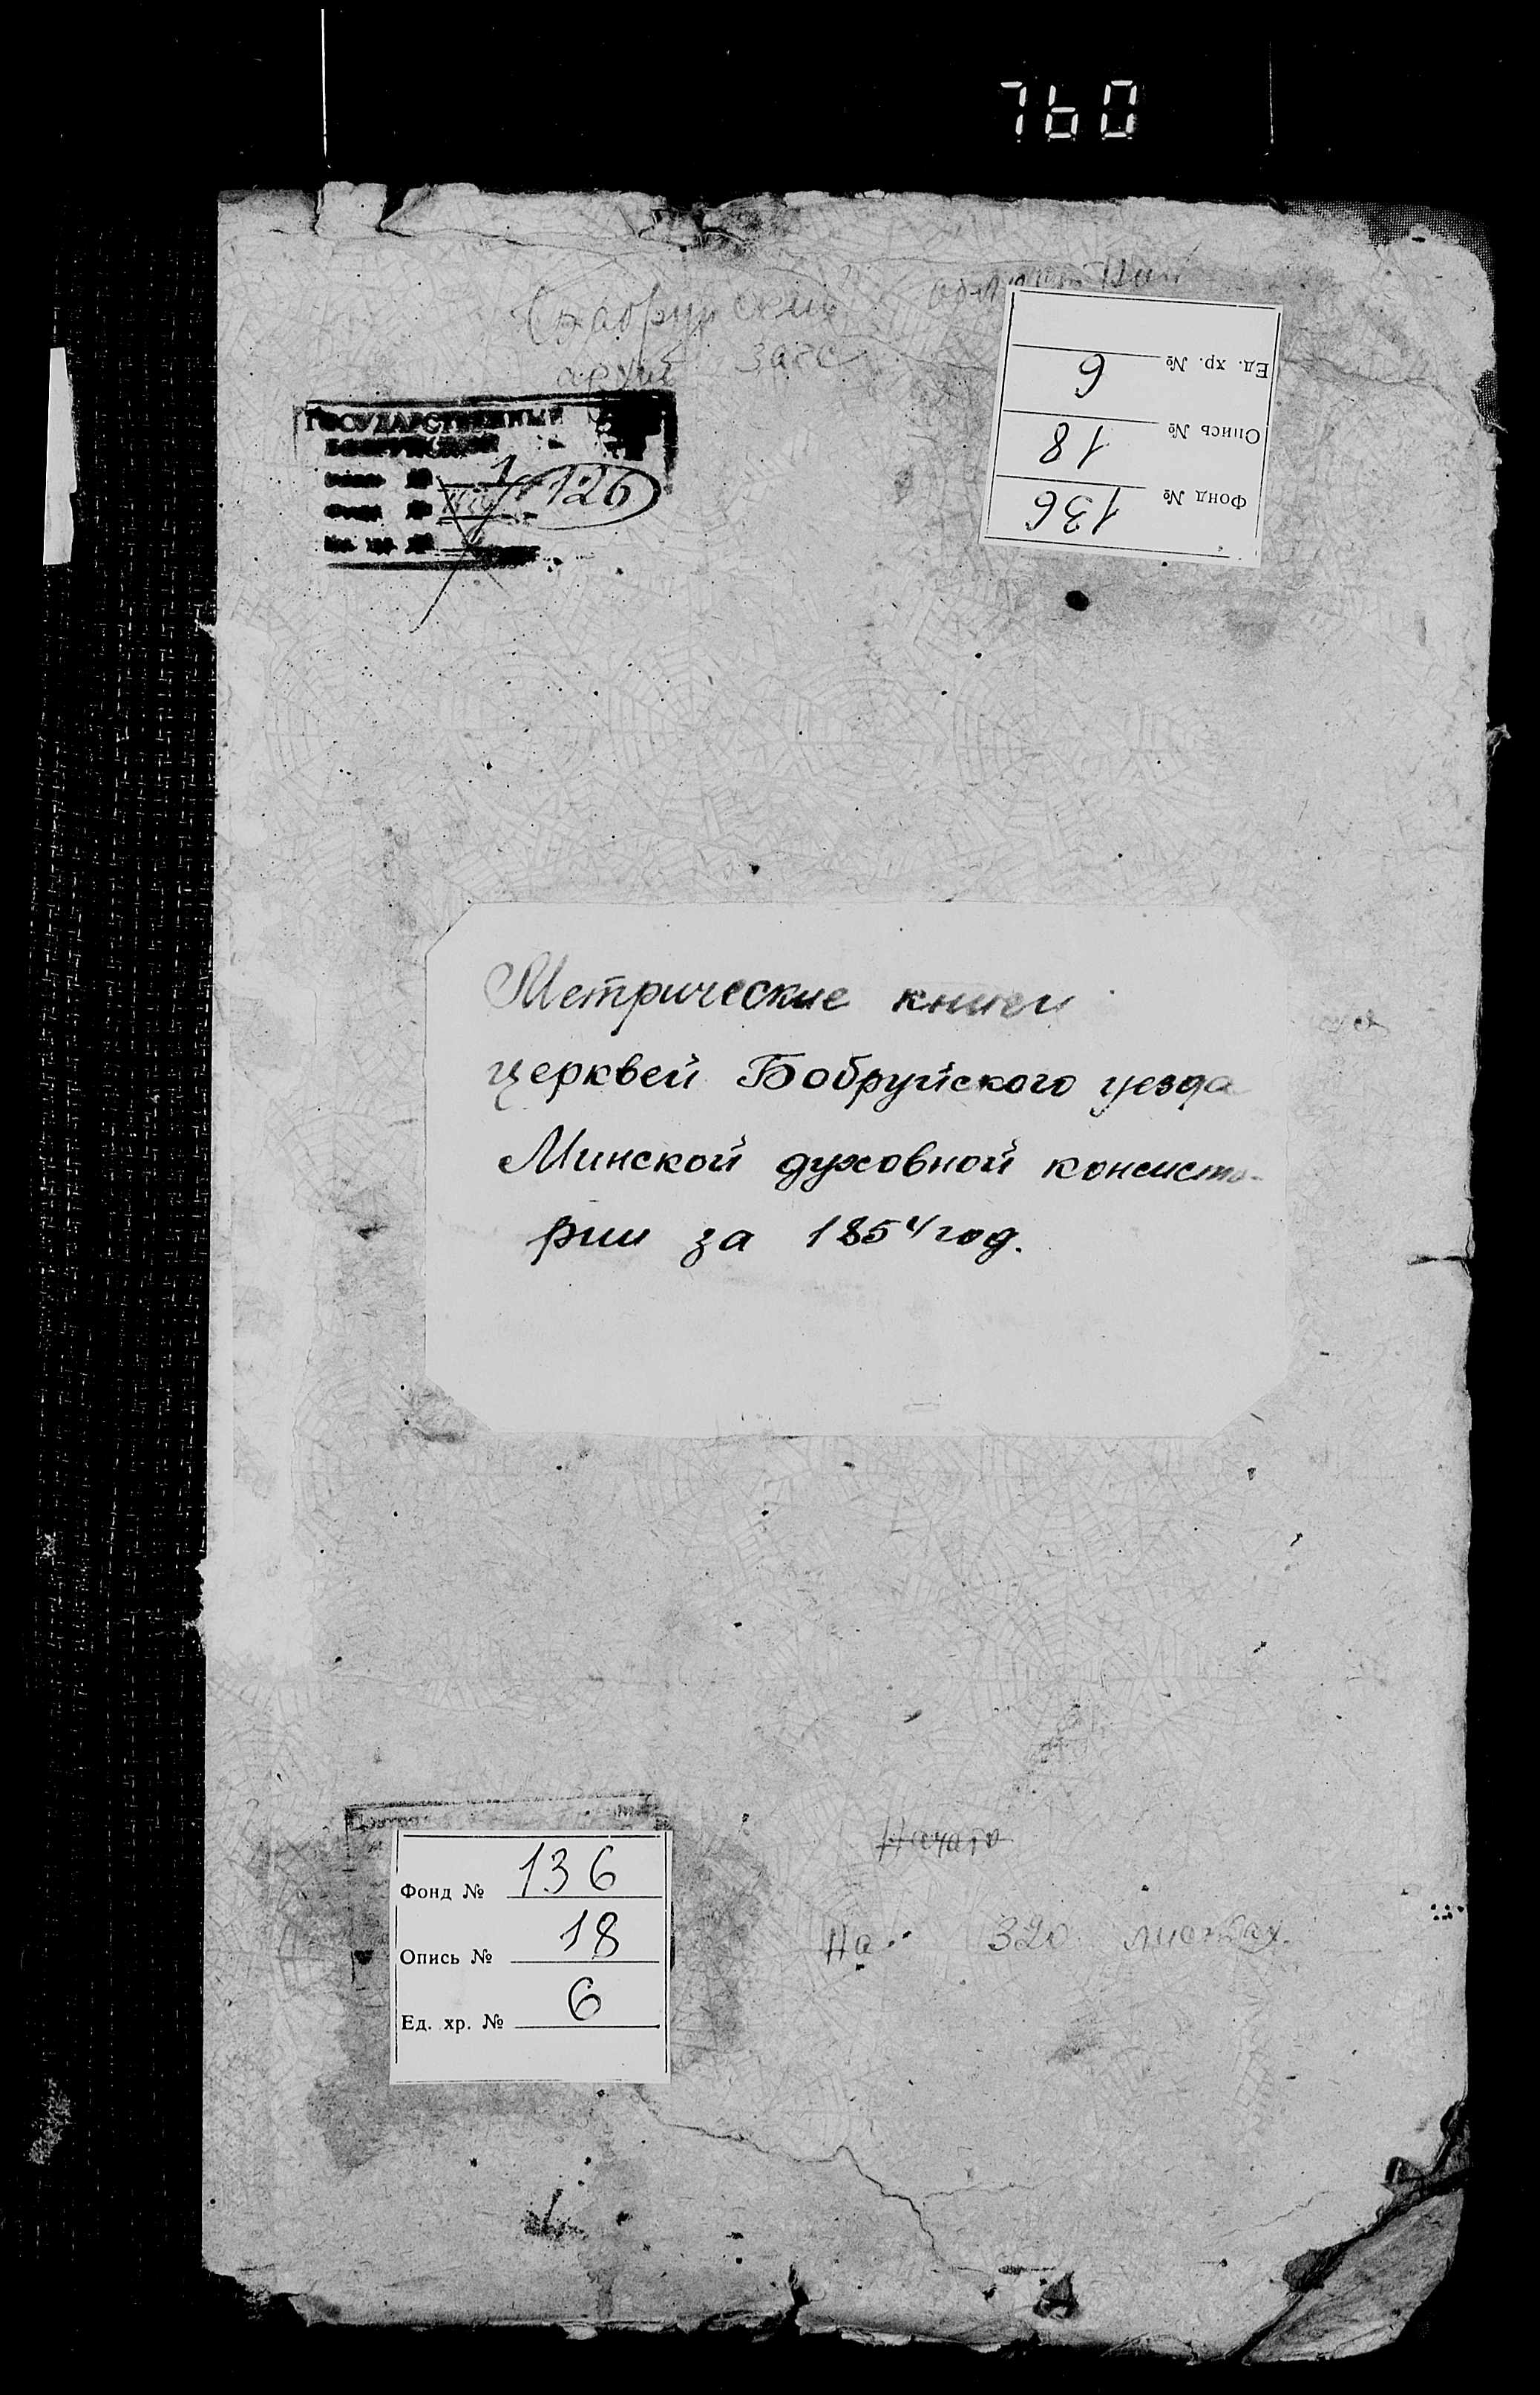 760
архив загс
Ед. хр. № 6
Опись № 18
Фонд № 136
ГОСУДАРСТВЕННЫЙ
1
126
Метрические книги
церквей Бобруйского уезда
Минской духовной консисто-
рии за 1854 год.
Начато
На 320 листах.
Фонд № 136
Опись № 18
Ед. хр. № 6